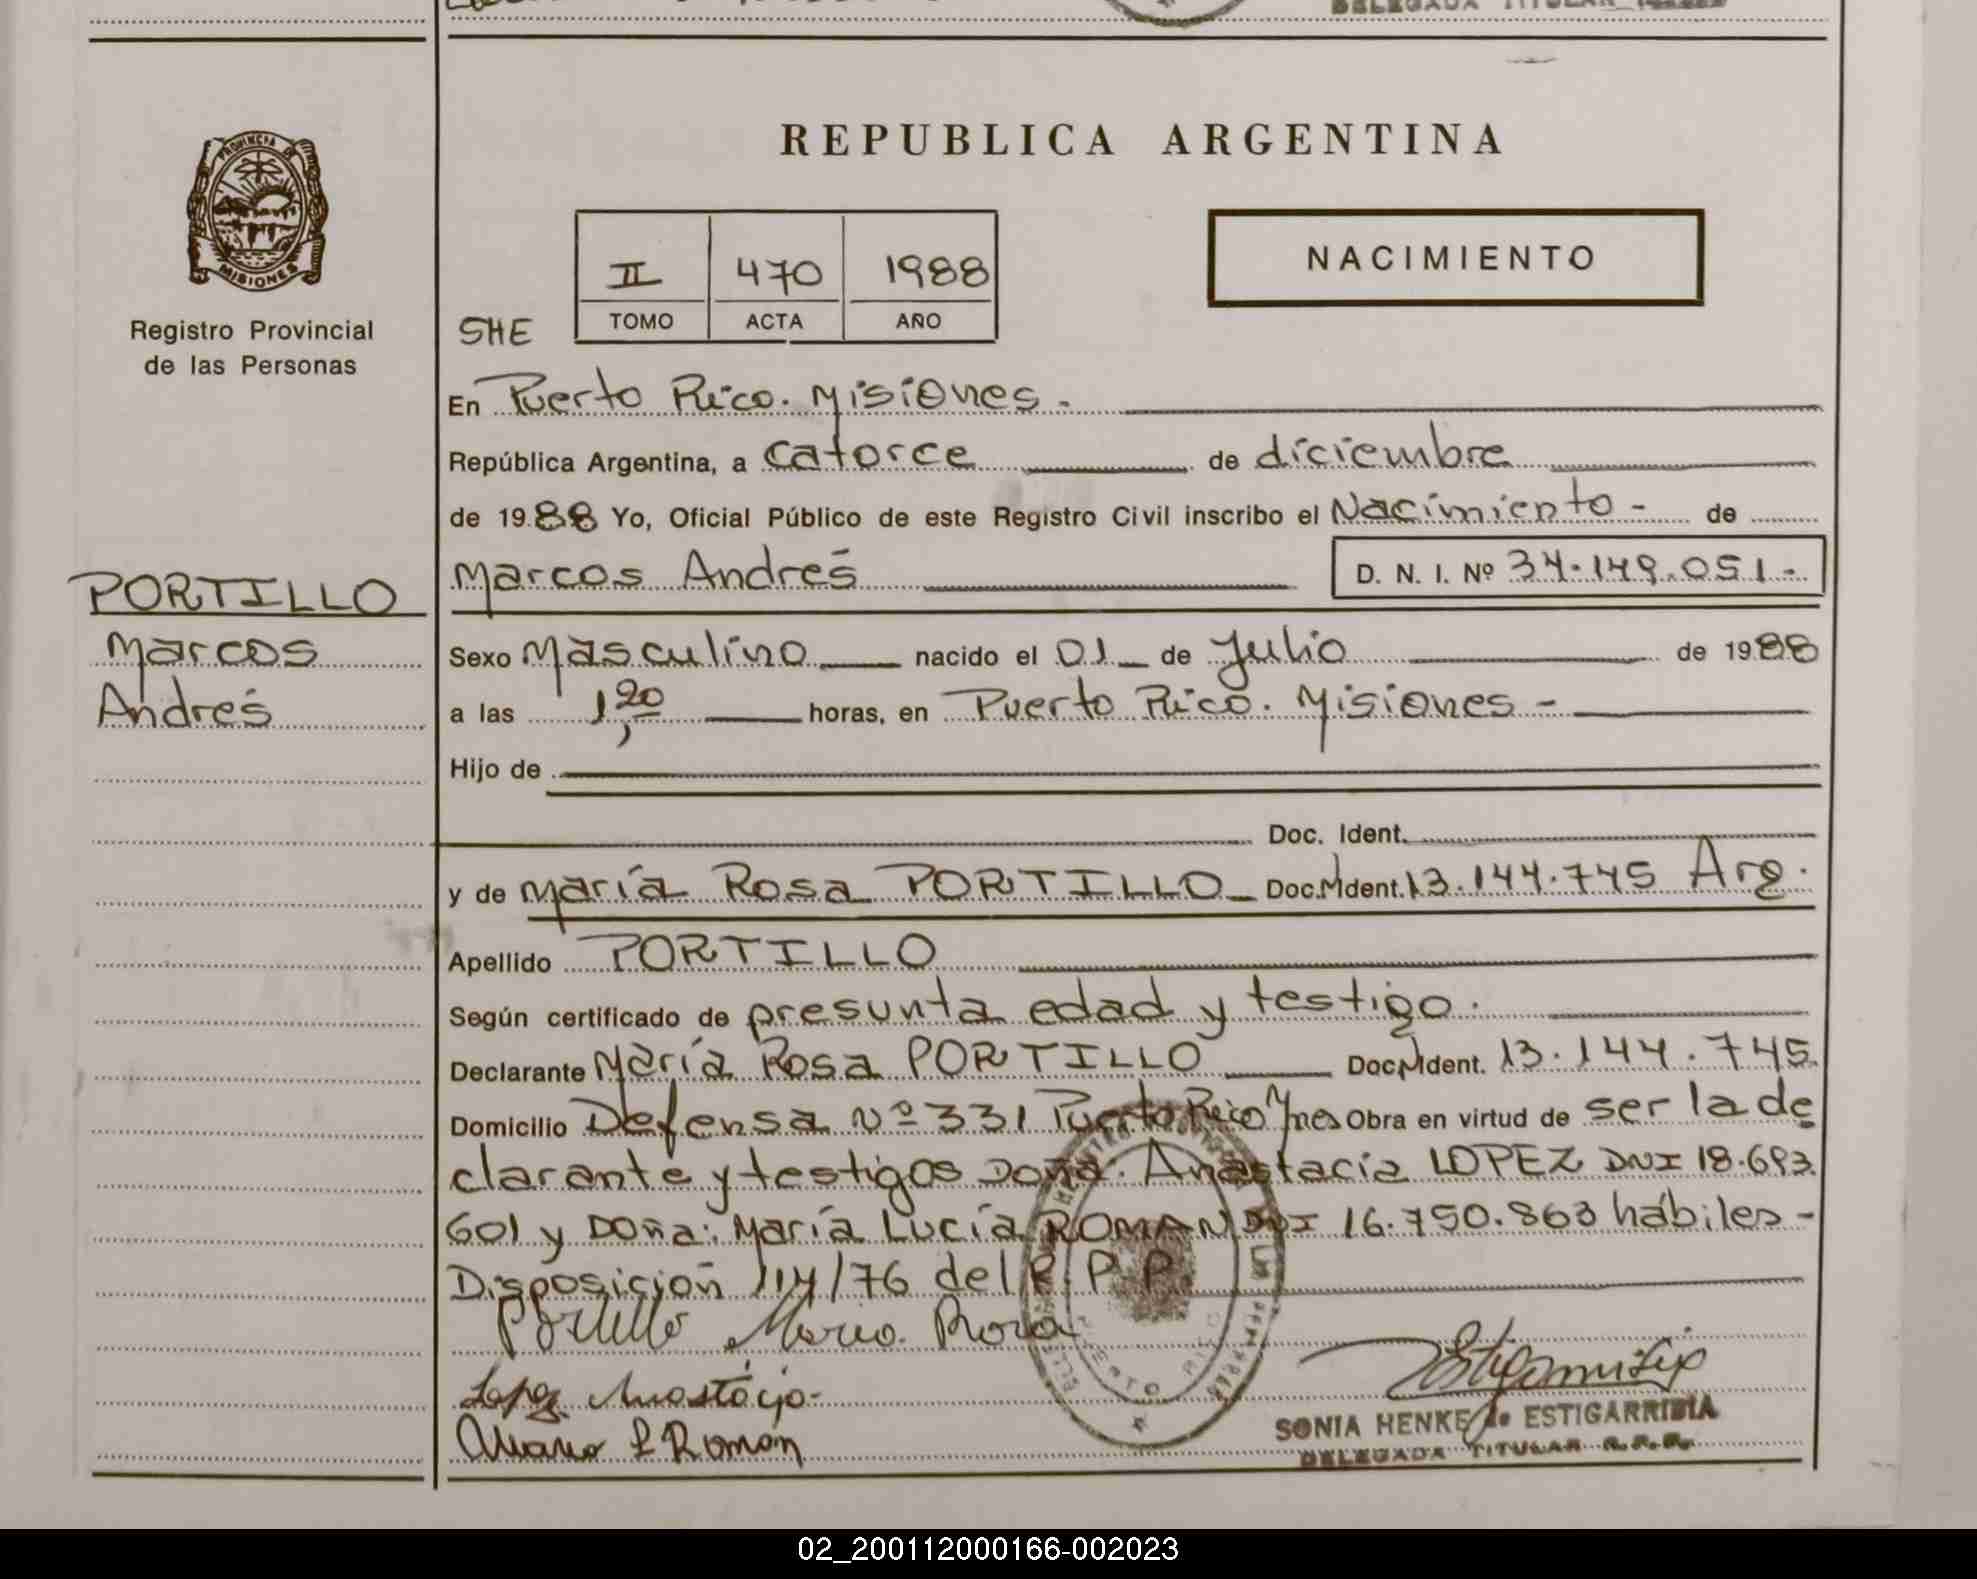 DELEGADA TITULAR
REPUBLICA ARGENTINA
PROVINCIA DE
MISIONES
Registro Provincial
de las Personas
II 470 1988
TOMO ACTA AÑO
NACIMIENTO
SHE
En Puerto Rico. Misiones -
República Argentina, a catorce de diciembre
de 1988 Yo, Oficial Público de este Registro Civil inscribo el Nacimiento - de
Marcos Andrés D. N. I. Nº 34.149.051.-
PORTILLO
Marcos
Andrés
Sexo Masculino nacido el 01 de Julio de 1988
a las 1,20 horas, en Puerto Rico. Misiones -
Hijo de
Doc. Ident.
y de María Rosa PORTILLO Doc. Ident. 13.144.745 Arg.
Apellido PORTILLO
Según certificado de presunta edad y testigo.
Declarante María Rosa PORTILLO Doc. Ident. 13.144.745
Domicilio Defensa Nº 331 Puerto Rico Mnes Obra en virtud de ser la de
clarante y testigos Doña. Anastacia LOPEZ DNI 18.693.
601 y Doña: María Lucía ROMAN DNI 16.750.863 hábiles -
Disposición 114/76 del R. P. P.
Portillo Maria Rosa
Lopez Anastacia
Maria L Roman
SONIA HENKE de ESTIGARRIBIA
DELEGADA TITULAR R.P.P.
02_200112000166-002023